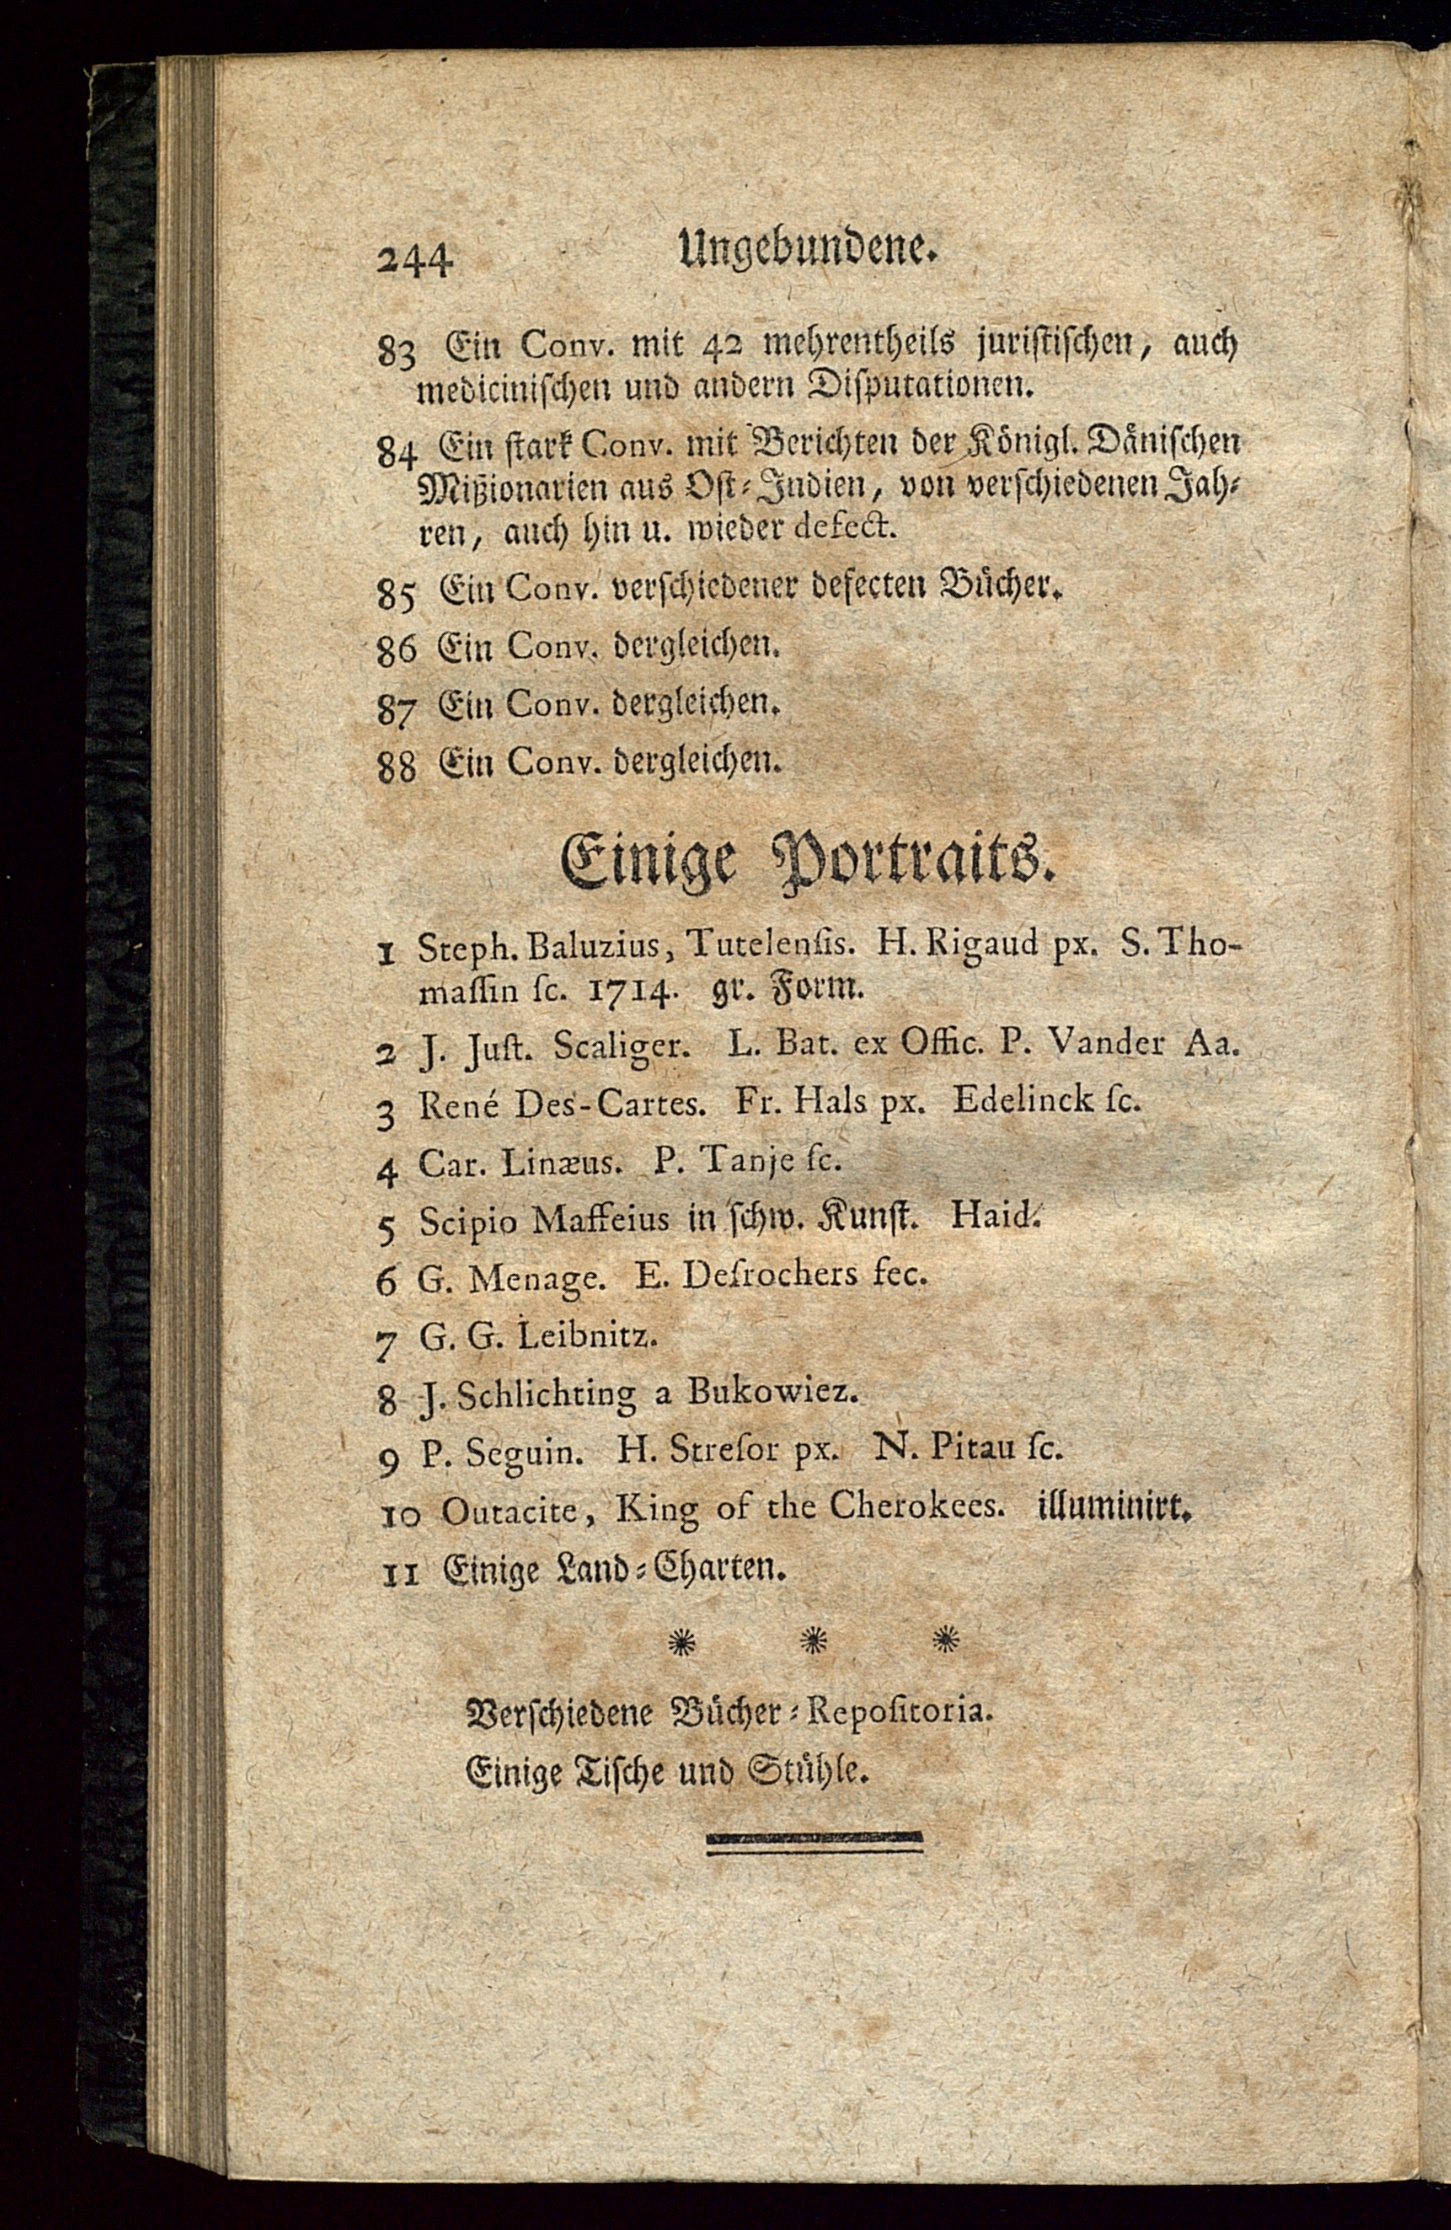 244 Ungebundene.
83 Ein Conv. mit 42 mehrentheils juriſtiſchen, auch
mediciniſchen und andern Diſputationen.
84 Ein ſtark Conv. mit Berichten der Königl. Däniſchen
Mißionarien aus Oſt-Indien, von verſchiedenen Jah-
ren, auch hin u. wieder defect.
85 Ein Conv. verſchiedener defecten Bücher.
86 Ein Conv. dergleichen.
87 Ein Conv. dergleichen.
88 Ein Conv. dergleichen.
Einige Portraits.
1 Steph. Baluzius, Tutelenſis. H. Rigaud px. S. Tho-
maſſin ſc. 1714. gr. Form.
2 J. Juſt. Scaliger. L. Bat. ex Offic. P. Vander Aa.
3 René Des-Cartes. Fr. Hals px. Edelinck ſc.
4 Car. Linæus. P. Tanje ſc.
5 Scipio Maffeius in ſchw. Kunſt. Haid.
6 G. Menage. E. Deſrochers fec.
7 G. G. Leibnitz.
8 J. Schlichting a Bukowiez.
9 P. Seguin. H. Streſor px. N. Pitau ſc.
10 Outacite, King of the Cherokees. illuminirt.
11 Einige Land-Charten.
* * *
Verſchiedene Bücher-Repoſitoria.
Einige Tiſche und Stühle.